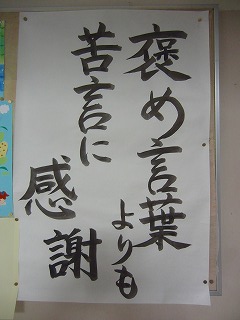 褒め言葉よりも
苦言に
感謝